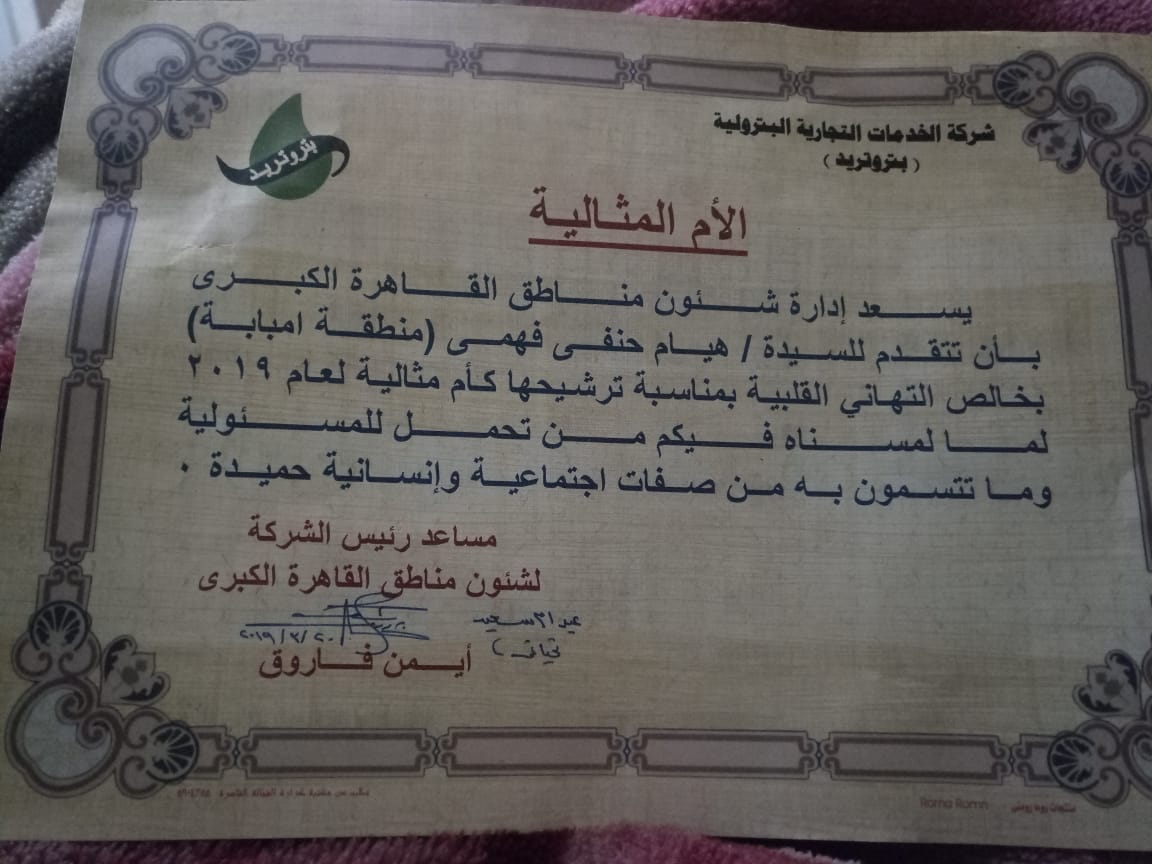 شركة الخدمات التجارية البترولية
( بتروتريد )
بتروتريد
الأم المثالية
يسعد إدارة شئون مناطق القاهرة الكبرى
بأن تتقدم للسيدة / هيام حنفى فهمى (منطقة امبابة)
بخالص التهاني القلبية بمناسبة ترشيحها كأم مثالية لعام ٢٠١٩
لما لمسناه فيكم من تحمل للمسئولية
وما تتسمون به من صفات اجتماعية وإنسانية حميدة .
مساعد رئيس الشركة
لشئون مناطق القاهرة الكبرى
عيد أم سعيد
تحياتى
٢٠١٩/٣/٢٠
أيمن فاروق
Roma Romn